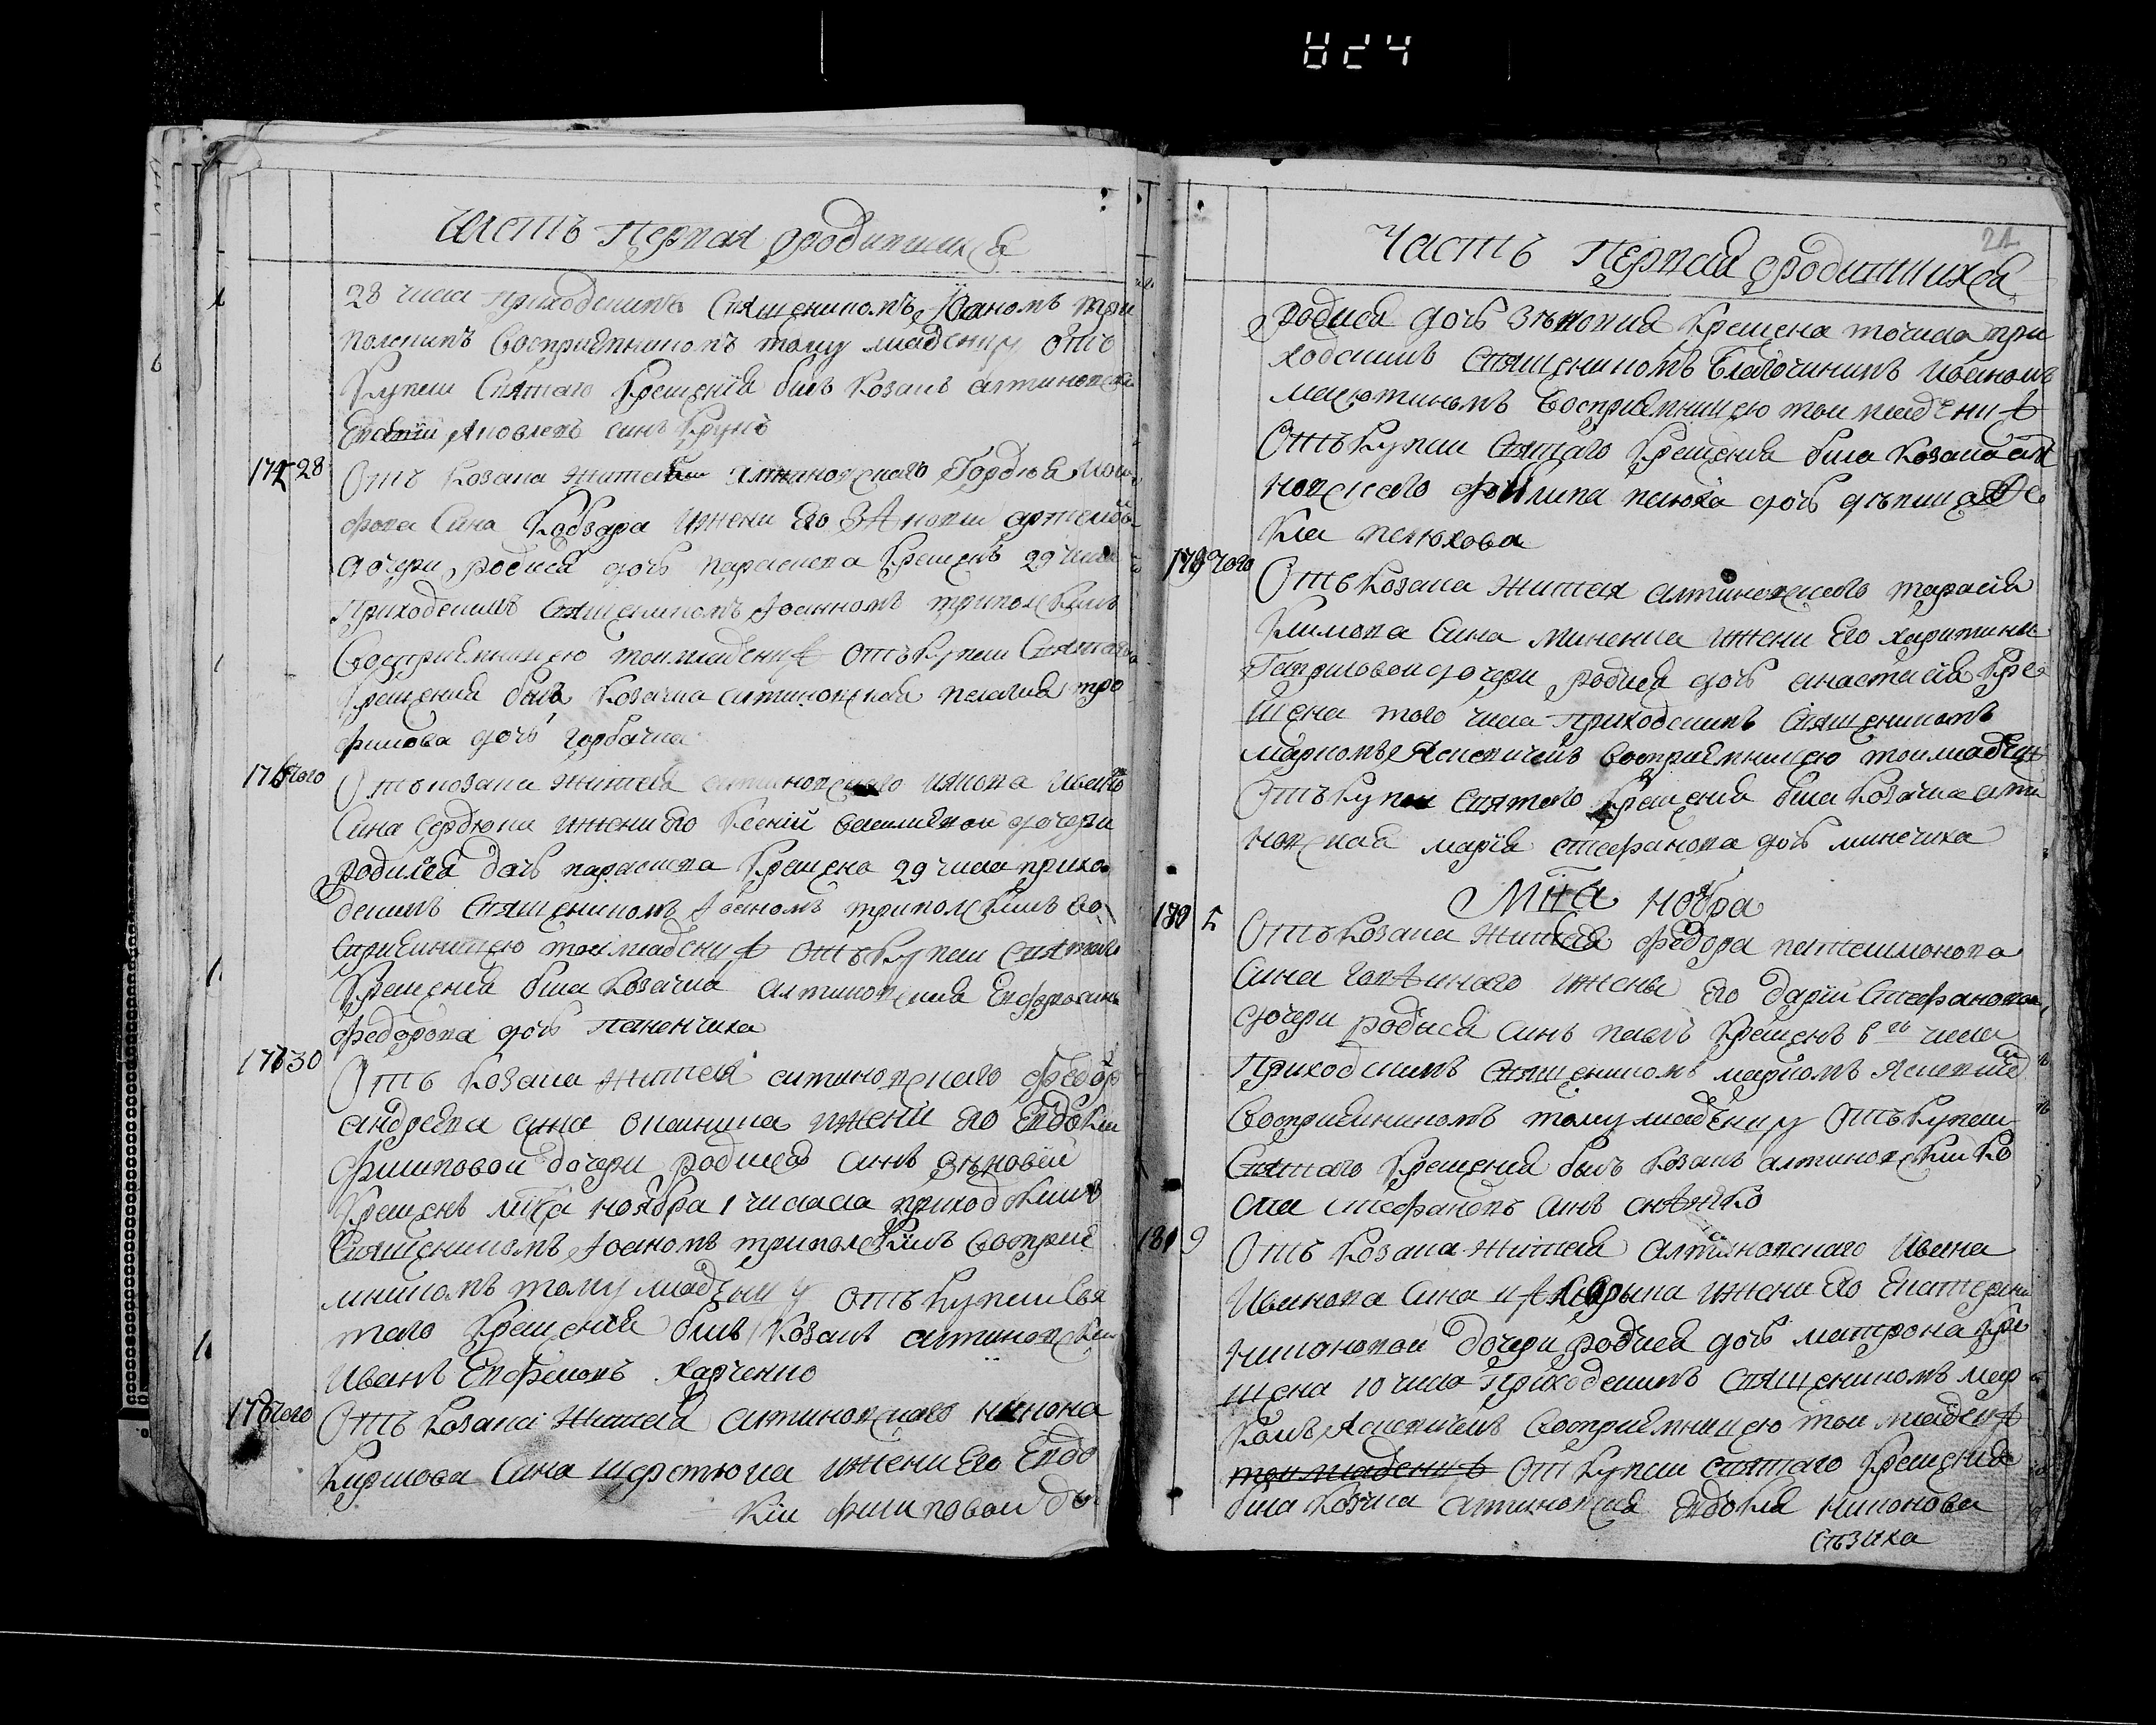 024
Часть Первая ородившихся
28 числа приходскимъ Священикомъ Иоаномъ Три
полскимъ Восприемникомъ тому младенцу отъ
Купели Святаго Крещения билъ Козакъ алтиновски
Яковлевъ синъ
174 28
Отъ Козака жителя алтиновского Гордѣя
сина Кобзара ижени Его
дочери родися дочь параскева Крещенъ 29 числа
Приходскимъ Священикомъ Иоанномъ триполскимъ
Восприемницею той младеницѣ отъ Купели Святаго
Крещения била Козачка алтиновская пелагия тро
фимова дочь горбачка
175 того
Отъ козака жителя алтиновского Якова Ивано
Сина Сердюка ижени Его Ксении василиевой дочери
родися дочь параскева Крещена 29 числа прихо
дскимъ Священикомъ Иоаномъ триполскимъ во
сприемницею той младеницѣ отъ Купели святаго
Крещения била Козачка алтиновская Евфросиния
федорова дочь паненчиха
176 30
Отъ Козака жителя алтиновского федора
андреева сина ижени Его Евдокии
филиповой дочери родися синъ Зѣновий
Крещенъ мца ноября 1 числа приходскимъ
Священикомъ Иоаномъ триполскимъ Восприе
мникомъ тому младенцу отъ Купели Свя
таго Крещения билъ Козакъ алтиновски
Иванъ Евфимовъ Харченко
178 того
Отъ Козака жителя алтиновского никона
Кирилова Сина шерстюка ижени Его Евдо
кии филиповой до
21
Часть Первая ородившихся
родися дочь Зѣновия Крещена того числа при
ходскимъ священикомъ Благочинимъ Иоаномъ
масютиномъ Восприемницею той младеницѣ
Отъ Купели Святаго Крещения била Козака алти
новского филипа дочь дѣвица
179 того
Отъ Козака жителя алтиновского тарасия
Климова Сина миненка ижени Его харитини
Гавриловой дочери родися дочь анастасия Кре
щена того числа Приходскимъ Священикомъ
Маркомъ Ясневичемъ Восприемницею той младениц
Отъ Купели святаго Крещения била Козачка алти
новская мария стефанова дочь минечиха
Мца ноября
180 5
Отъ Козака жителя федора пателимонова
Сина ижени Его дарии Стефановой
дочери родися синъ павлъ Крещенъ 6 го числа
Приходскимъ священикомъ маркомъ Ясневиче
Восприемникомъ тому младенцу Отъ Купели
Святаго Крещения билъ Козакъ алтиновский
стефановъ синъ
181 9
Отъ Козака жителя алтиновского Ивана
Иванова Сина ижени Его Екатерини
никоновой дочери родися дочь матрона Кре
щена 10 числа Приходскимъ Священикомъ мар
комъ Ясневичемъ Восприемницею той младеницѣ
той младеницѣ от Купели святаго Крещения
била Козачка алтиновская Евдокия никонова